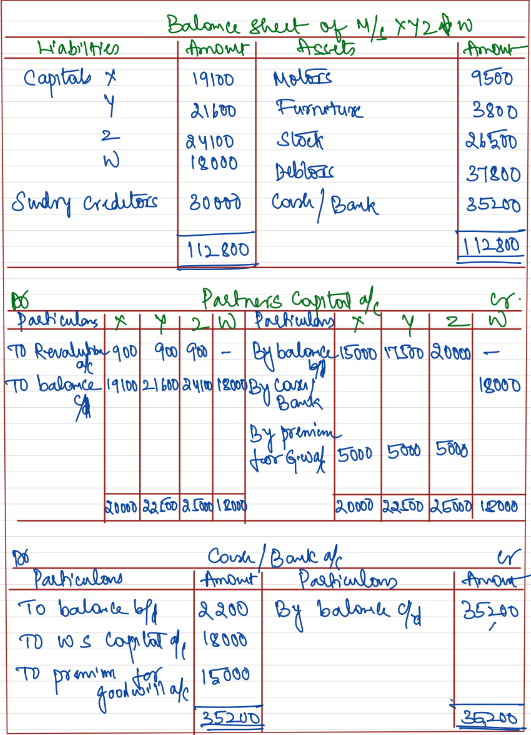 Balance sheet of M/s XYZ & W
Liabilities Amount Assets Amount
Capitals X 19100 Motors 9500
Y 21600 Furniture 3800
Z 24100 Stock 26500
W 18000
Debtors 37800
Sundry Creditors 30000 Cash/Bank 35200
112800 112800
Dr Partners Capital a/c Cr
Particulars X Y Z W Particulars X Y Z W
To Revaluation a/c 900 900 900 - By balance b/d 15000 17500 20000 -
To balance c/d 19100 21600 24100 18000 By Cash/Bank 18000
By premium for G.w a/c 5000 5000 5000
20000 22500 25000 18000 20000 22500 25000 18000
Dr Cash/Bank a/c Cr
Particulars Amount Particulars Amount
To balance b/d 2200 By balance c/d 35200
To W s Capital a/c 18000
To premium for goodwill a/c 15000
35200 35200